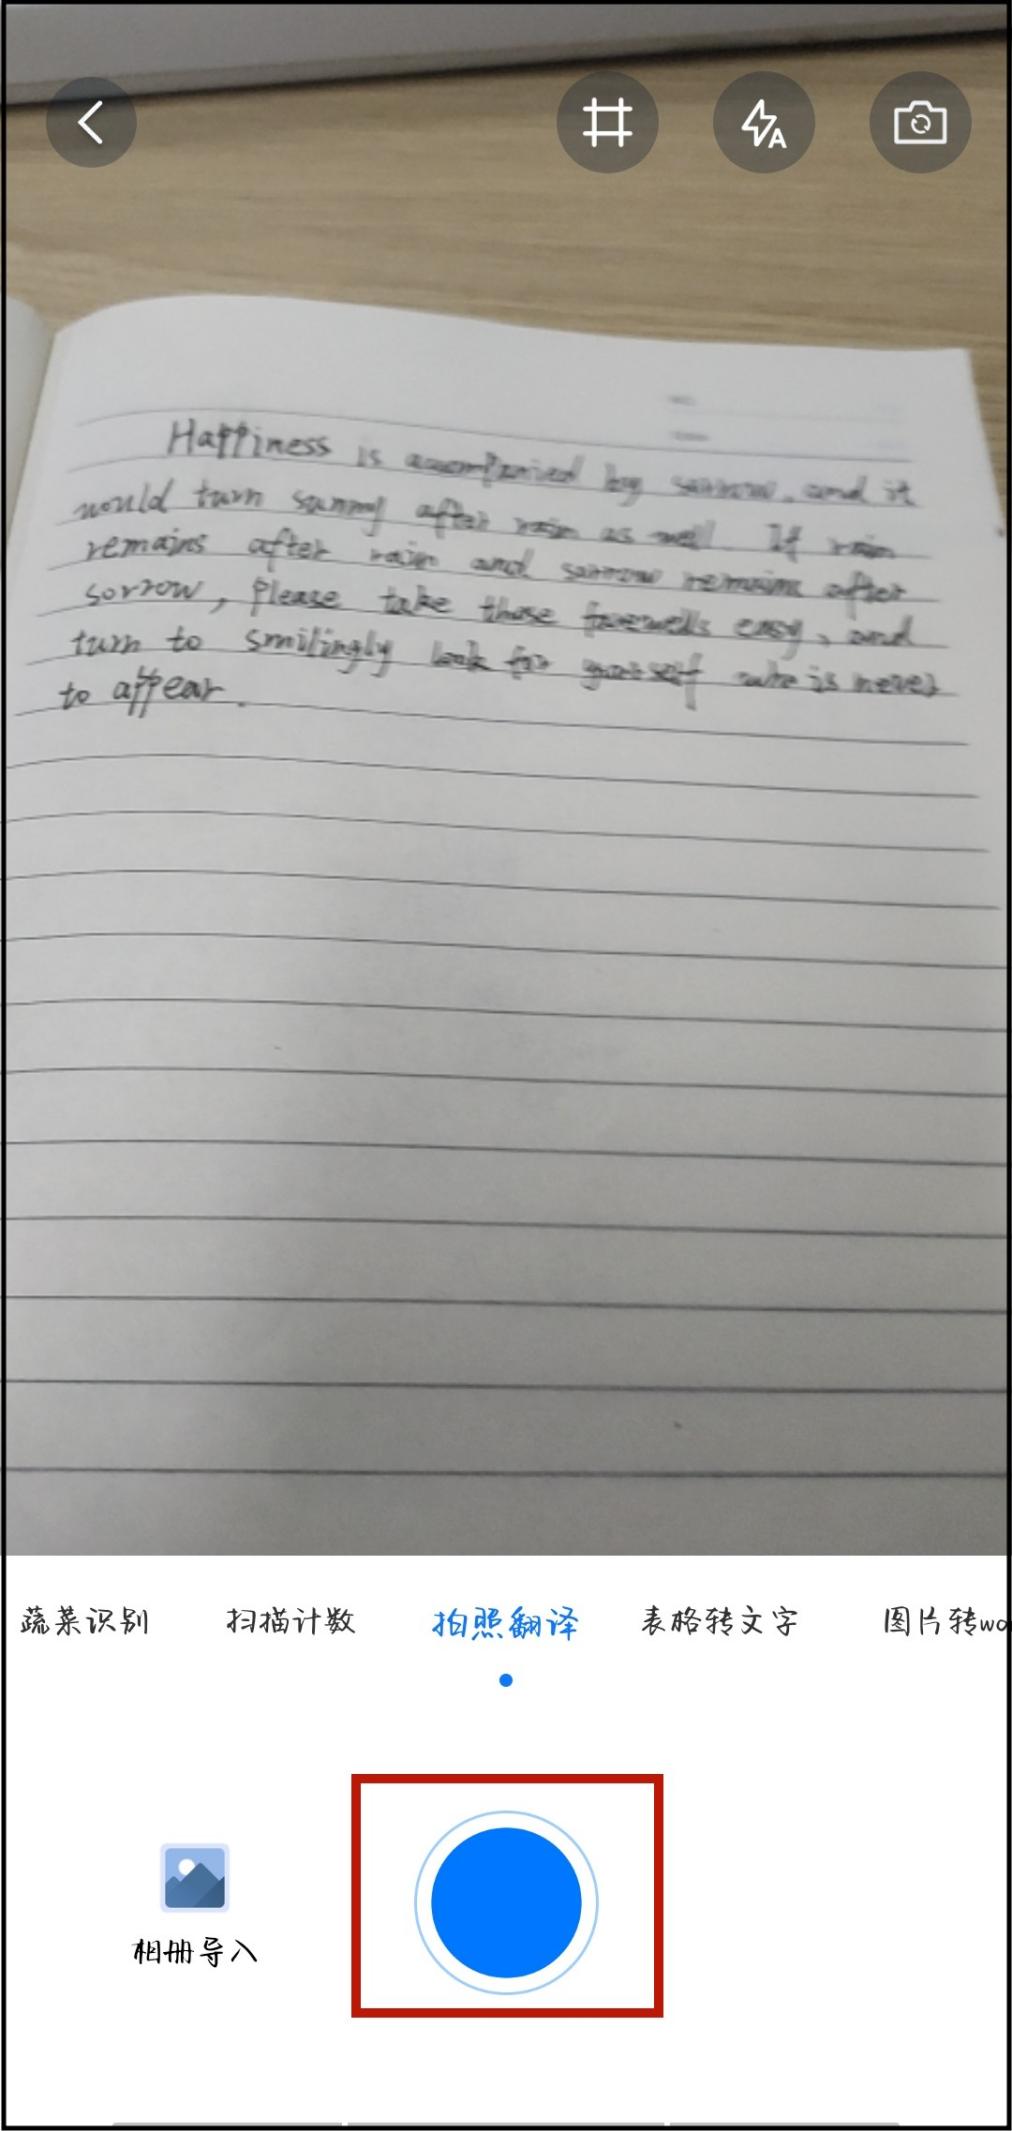 Happiness is accompanied by sorrow, and it
would turn sunny after rain as well. If rain
remains after rain and sorrow remains after
sorrow, Please take those farewells easy, and
turn to smilingly look for yourself who is never
to appear.
蔬菜识别 扫描计数 拍照翻译 表格转文字 图片转wo
相册导入